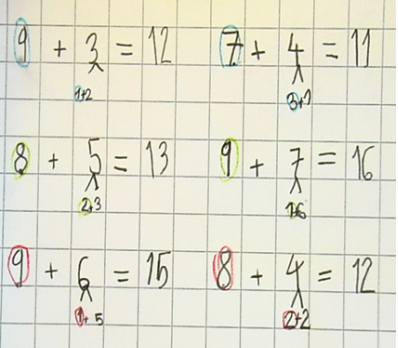 9 + 3 = 12 7 + 4 = 11
1+2 3+1
8 + 5 = 13 9 + 7 = 16
2+3 1+6
9 + 6 = 15 8 + 4 = 12
1+5 2+2